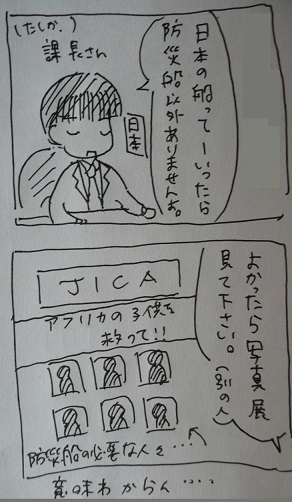 日本の船ってーいったら
防災船以外ありませんよ。
(たしか、)
課長さん
日本
よかったら写真展
見て下さい。(別の人)
JICA
アフリカの子供を
救って!!
防災船の必要な人を…
意味わからん….